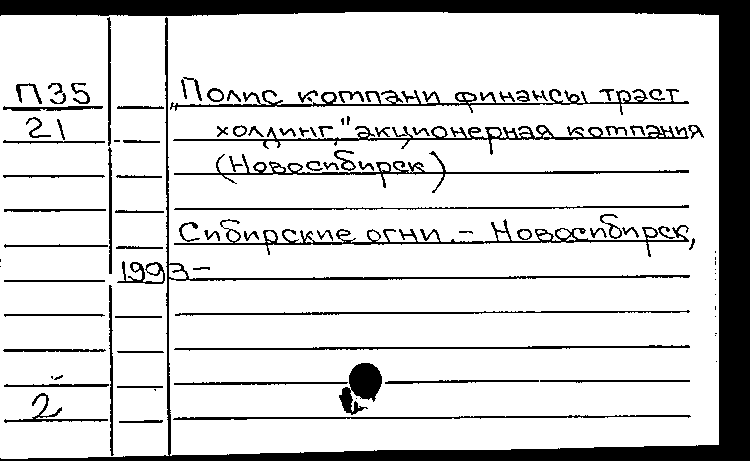 П35 „Полис компани финансы трэст
21 холдинг," акционерная компания
(Новосибирск)
Сибирские огни. – Новосибирск,
1993–
2